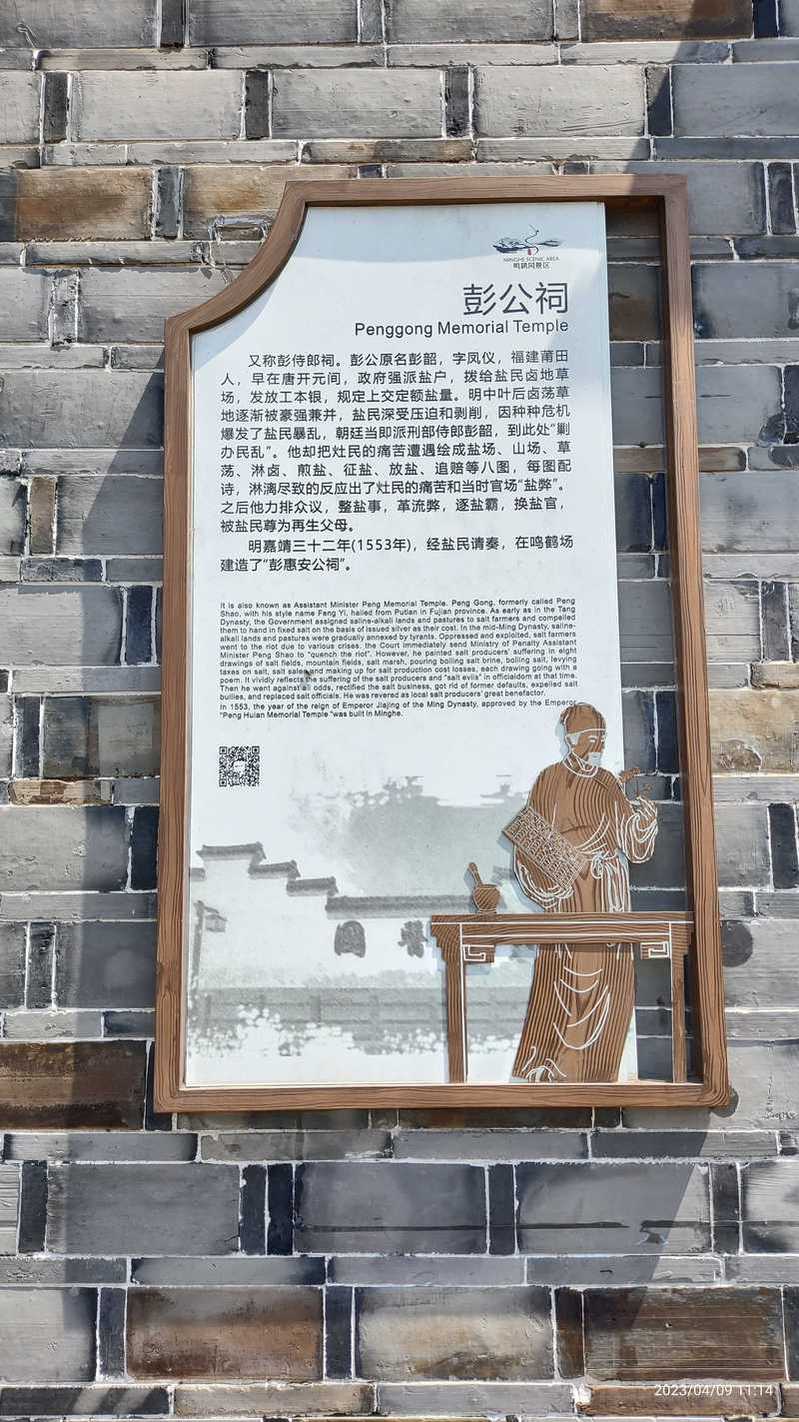 MINGHE SCENIC AREA
鸣鹤风景区
彭公祠
Penggong Memorial Temple
又称彭侍郎祠。彭公原名彭韶，字凤仪，福建莆田
人，早在唐开元间，政府强派盐户，拨给盐民卤地草
场，发放工本银，规定上交定额盐量。明中叶后卤荡草
地逐渐被豪强兼并，盐民深受压迫和剥削，因种种危机
爆发了盐民暴乱，朝廷当即派刑部侍郎彭韶，到此处“剿
办民乱”。他却把灶民的痛苦遭遇绘成盐场、山场、草
荡、淋卤、煎盐、征盐、放盐、追赔等八图，每图配
诗，淋漓尽致的反应出了灶民的痛苦和当时官场“盐弊”。
之后他力排众议，整盐事，革流弊，逐盐霸，换盐官，
被盐民尊为再生父母。
明嘉靖三十二年(1553年)，经盐民请奏，在鸣鹤场
建造了“彭惠安公祠”。
It is also known as Assistant Minister Peng Memorial Temple. Peng Gong, formerly called Peng
Shao, with his style name Fang Yi, hailed from Putian in Fujian province. As early as in the Tang
Dynasty, the Government assigned saline-alkali lands and pastures to salt farmers and compelled
them to hand in fixed salt on the basis of issued silver as their cost. In the mid-Ming Dynasty, saline-
alkali lands and pastures were gradually annexed by tyrants. Oppressed and exploited, salt farmers
went to the riot due to various crises, the Court immediately send Ministry of Penalty Assistant
Minister Peng Shao to "quench the riot". However, he painted salt producers' suffering in eight
drawings of salt fields, mountain fields, salt marsh, pouring boiling salt brine, boiling salt, levying
taxes on salt, salt sales and making up for salt production cost losses, each drawing going with a
poem. It vividly reflects the suffering of the salt producers and "salt evils" in officialdom at that time.
Then he went against all odds, rectified the salt business, got rid of former defaults, expelled salt
bullies, and replaced salt officials. He was revered as local salt producers' great benefactor.
In 1553, the year of the reign of Emperor Jiajing of the Ming Dynasty, approved by the Emperor,
"Peng Huian Memorial Temple "was built in Minghe.
2023/04/09 11:14